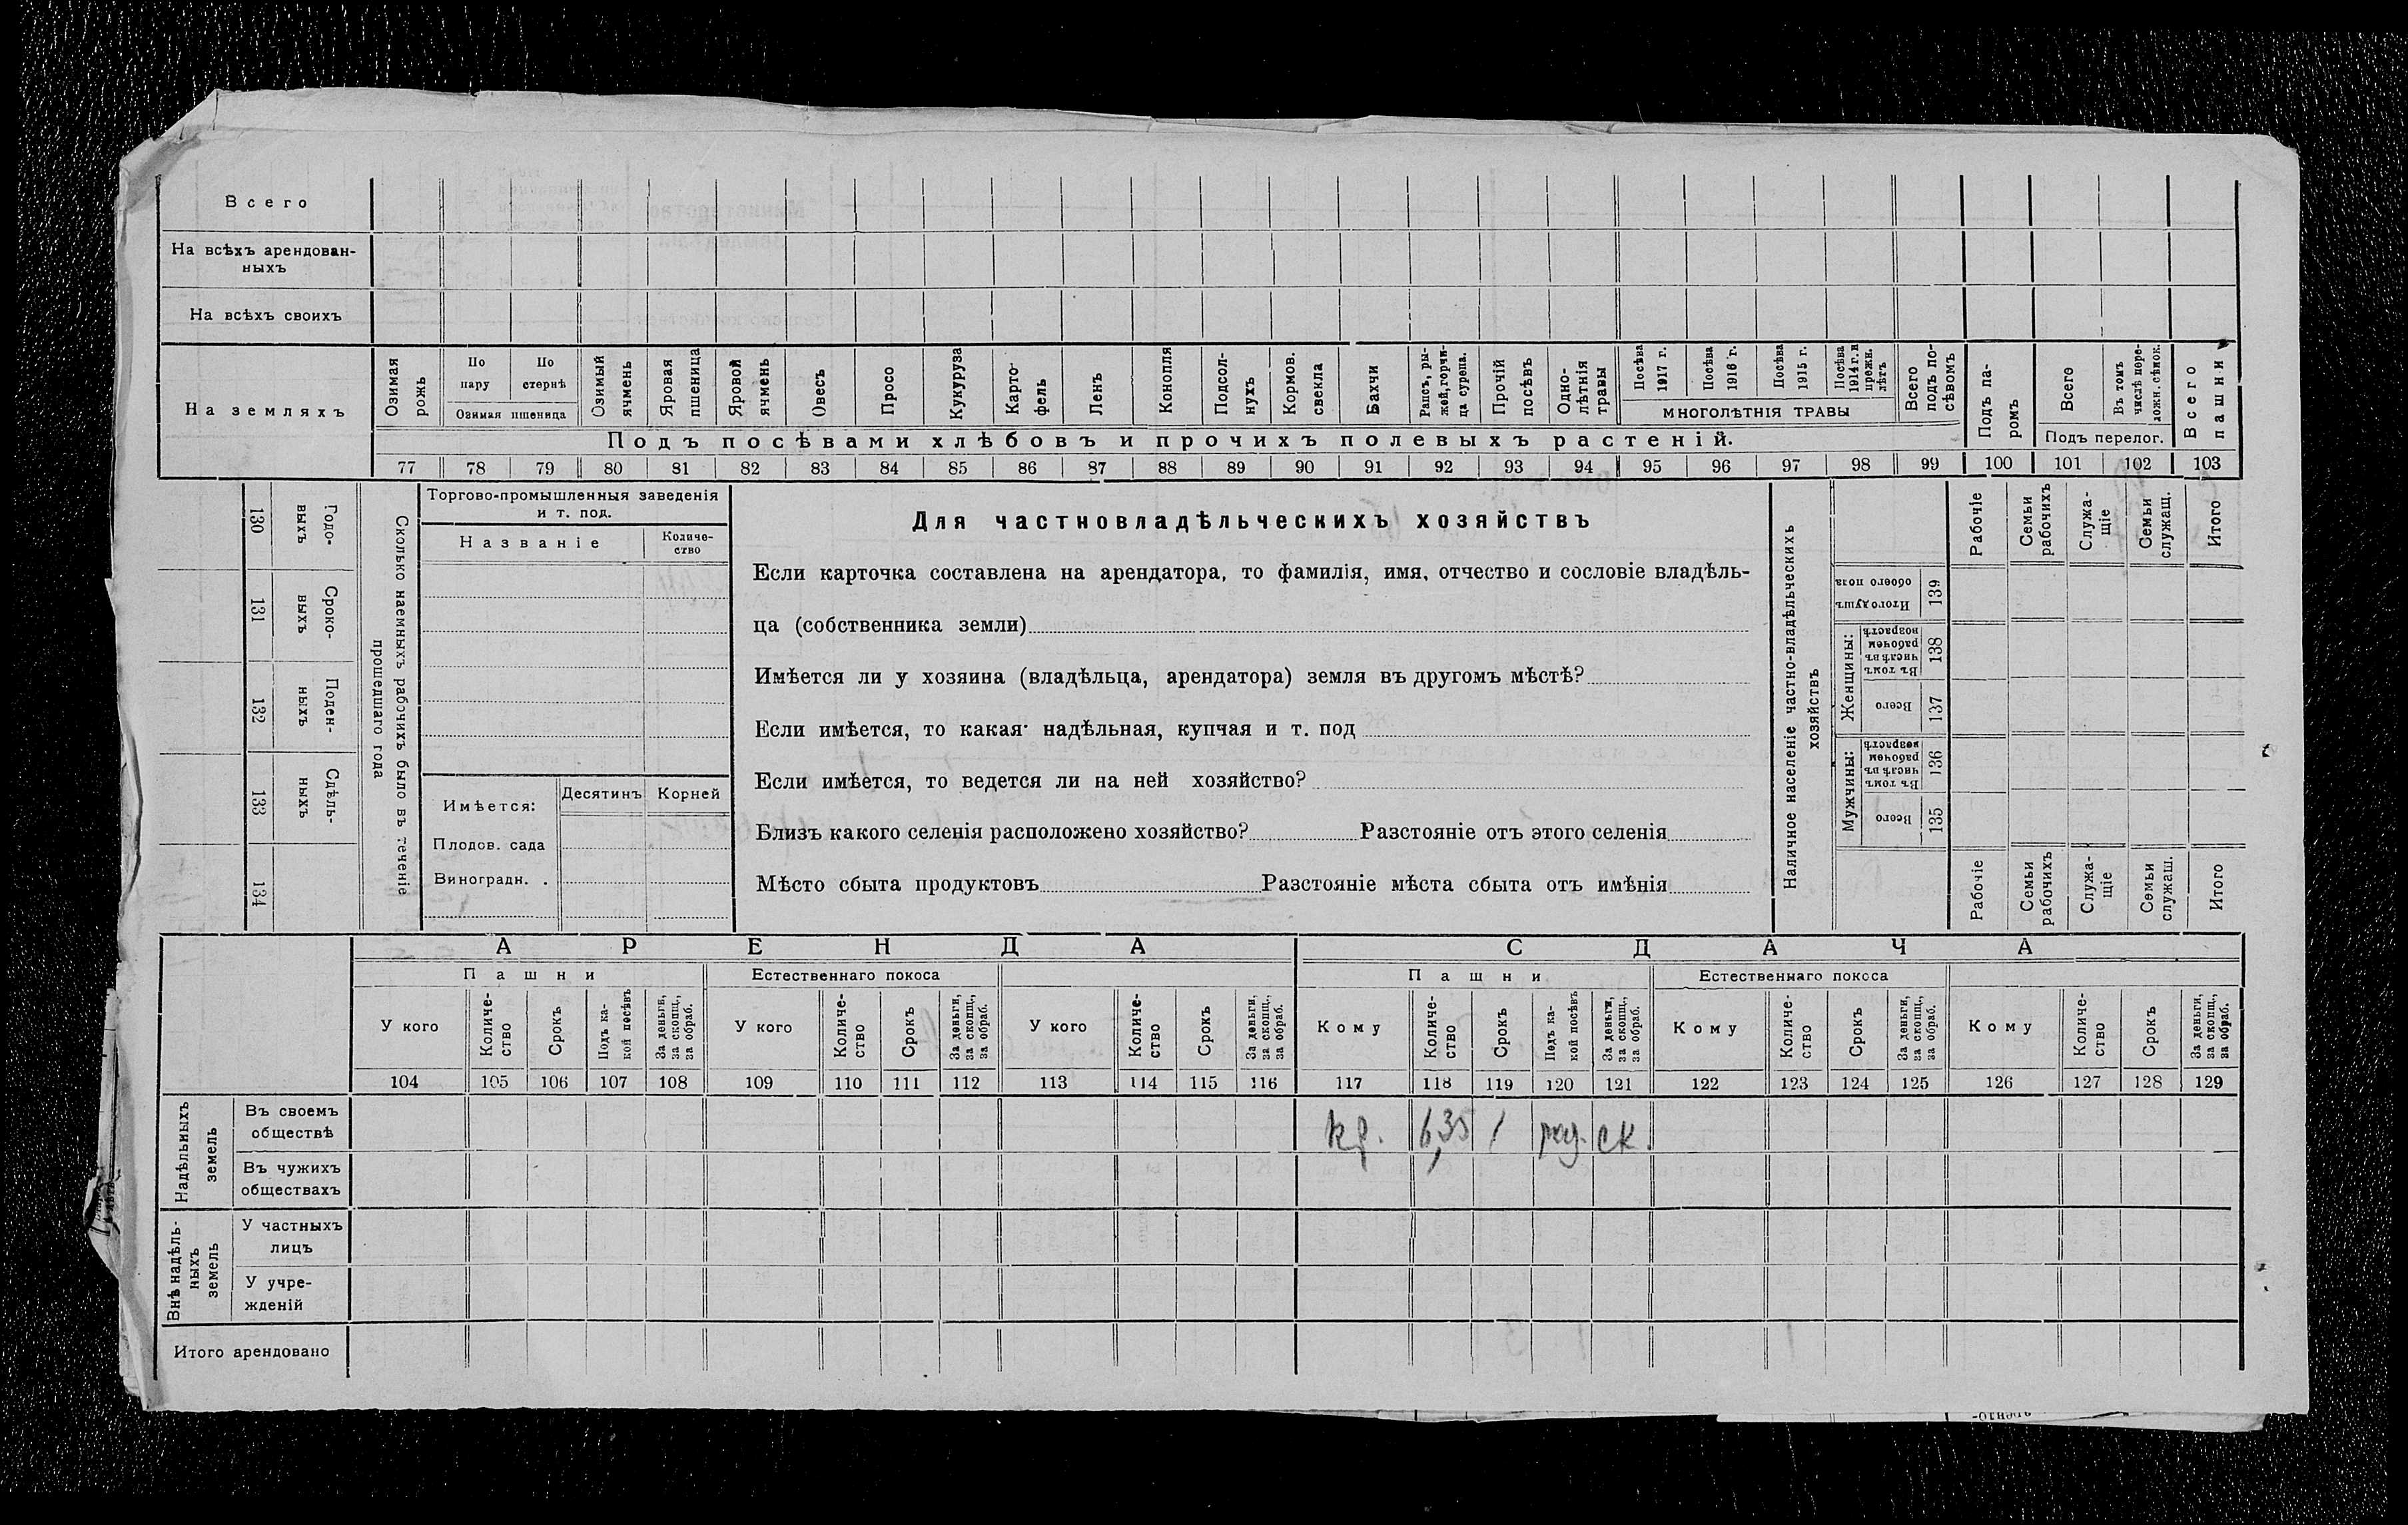 Всего
На всѣхъ арендован-
ныхъ
На всѣхъ своихъ
На земляхъ
Озимая рожь
По пару
По стернѣ
Озимая пшеница
Озимый ячмень
Яровая пшеница
Яровой ячмень
Овесъ
Просо
Кукуруза
Карто-
фель
Ленъ
Конопля
Подсол-
нухъ
Кормов.
свекла
Бахчи
Рапсъ, ры-
жей, горчи-
ца сурепа.
Прочій
посѣвъ
Одно-
лѣтнія
травы
Посѣва
1917 г.
Посѣва
1916 г.
Посѣва
1915 г.
Посѣва
1914 г. и
прежн.
лѣтъ
МНОГОЛѢТНІЯ ТРАВЫ
Всего
подъ по-
сѣвомъ
Подъ па-
ромъ
Всего
Въ томъ
числѣ пере-
ложн. сѣнок.
Подъ перелог.
Всего
пашни
Подъ посѣвами хлѣбовъ и прочихъ полевыхъ растеній.
77 78 79 80 81 82 83 84 85 86 87 88 89 90 91 92 93 94 95 96 97 98 99 100 101 102 103
130
Годо-
выхъ
131
Сроко-
выхъ
132
Поден-
ныхъ
133
Сдѣль-
ныхъ
134
Сколько наемныхъ рабочихъ было въ теченіе
прошедшаго года
Торгово-промышленныя заведенія
и т. под.
Названіе
Количе-
ство
Имѣется:
Десятинъ
Корней
Плодов. сада
Виноградн. .
Для частновладѣльческихъ хозяйствъ
Если карточка составлена на арендатора, то фамилія, имя, отчество и сословіе владѣль-
ца (собственника земли)
Имѣется ли у хозяина (владѣльца, арендатора) земля въ другомъ мѣстѣ?
Если имѣется, то какая: надѣльная, купчая и т. под
Если имѣется, то ведется ли на ней хозяйство?
Близъ какого селенія расположено хозяйство? Разстояніе отъ этого селенія
Мѣсто сбыта продуктовъ Разстояніе мѣста сбыта отъ имѣнія
Наличное населеніе частно-владѣльческихъ
хозяйствъ
Рабочіе
Семьи
рабочихъ
Служа-
щіе
Семьи
служащ.
Итого
Итого душъ
обоего пола
139
Женщины:
Въ томъ
числѣ въ
рабочем
возрастѣ
138
Всего
137
Мужчины:
Въ томъ
числѣ въ
рабочем
возрастѣ
136
Всего
135
Рабочіе
Семьи
рабочихъ
Служа-
щіе
Семьи
служащ.
Итого
АРЕНДА
СДАЧА
Пашни
Естественнаго покоса
Пашни
Естественнаго покоса
У кого
Количе-
ство
Срокъ
Подъ ка-
кой посѣвъ
За деньги,
за скопщ.,
за обраб.
У кого
Количе-
ство
Срокъ
За деньги,
за скопщ.,
за обраб.
У кого
Количе-
ство
Срокъ
За деньги,
за скопщ.,
за обраб.
Кому
Количе-
ство
Срокъ
Подъ ка-
кой посѣвъ
За деньги,
за скопщ.,
за обраб.
Кому
Количе-
ство
Срокъ
За деньги,
за скопщ.,
за обраб.
Кому
Количе-
ство
Срокъ
За деньги,
за скопщ.,
за обраб.
104 105 106 107 108 109 110 111 112 113 114 115 116 117 118 119 120 121 122 123 124 125 126 127 128 129
Надѣльныхъ
земель
Въ своемъ
обществѣ
кр. 6,35 1 ск.
Въ чужихъ
обществахъ
Внѣ надѣль-
ныхъ
земель
У частныхъ
лицъ
У учре-
жденій
Итого арендовано